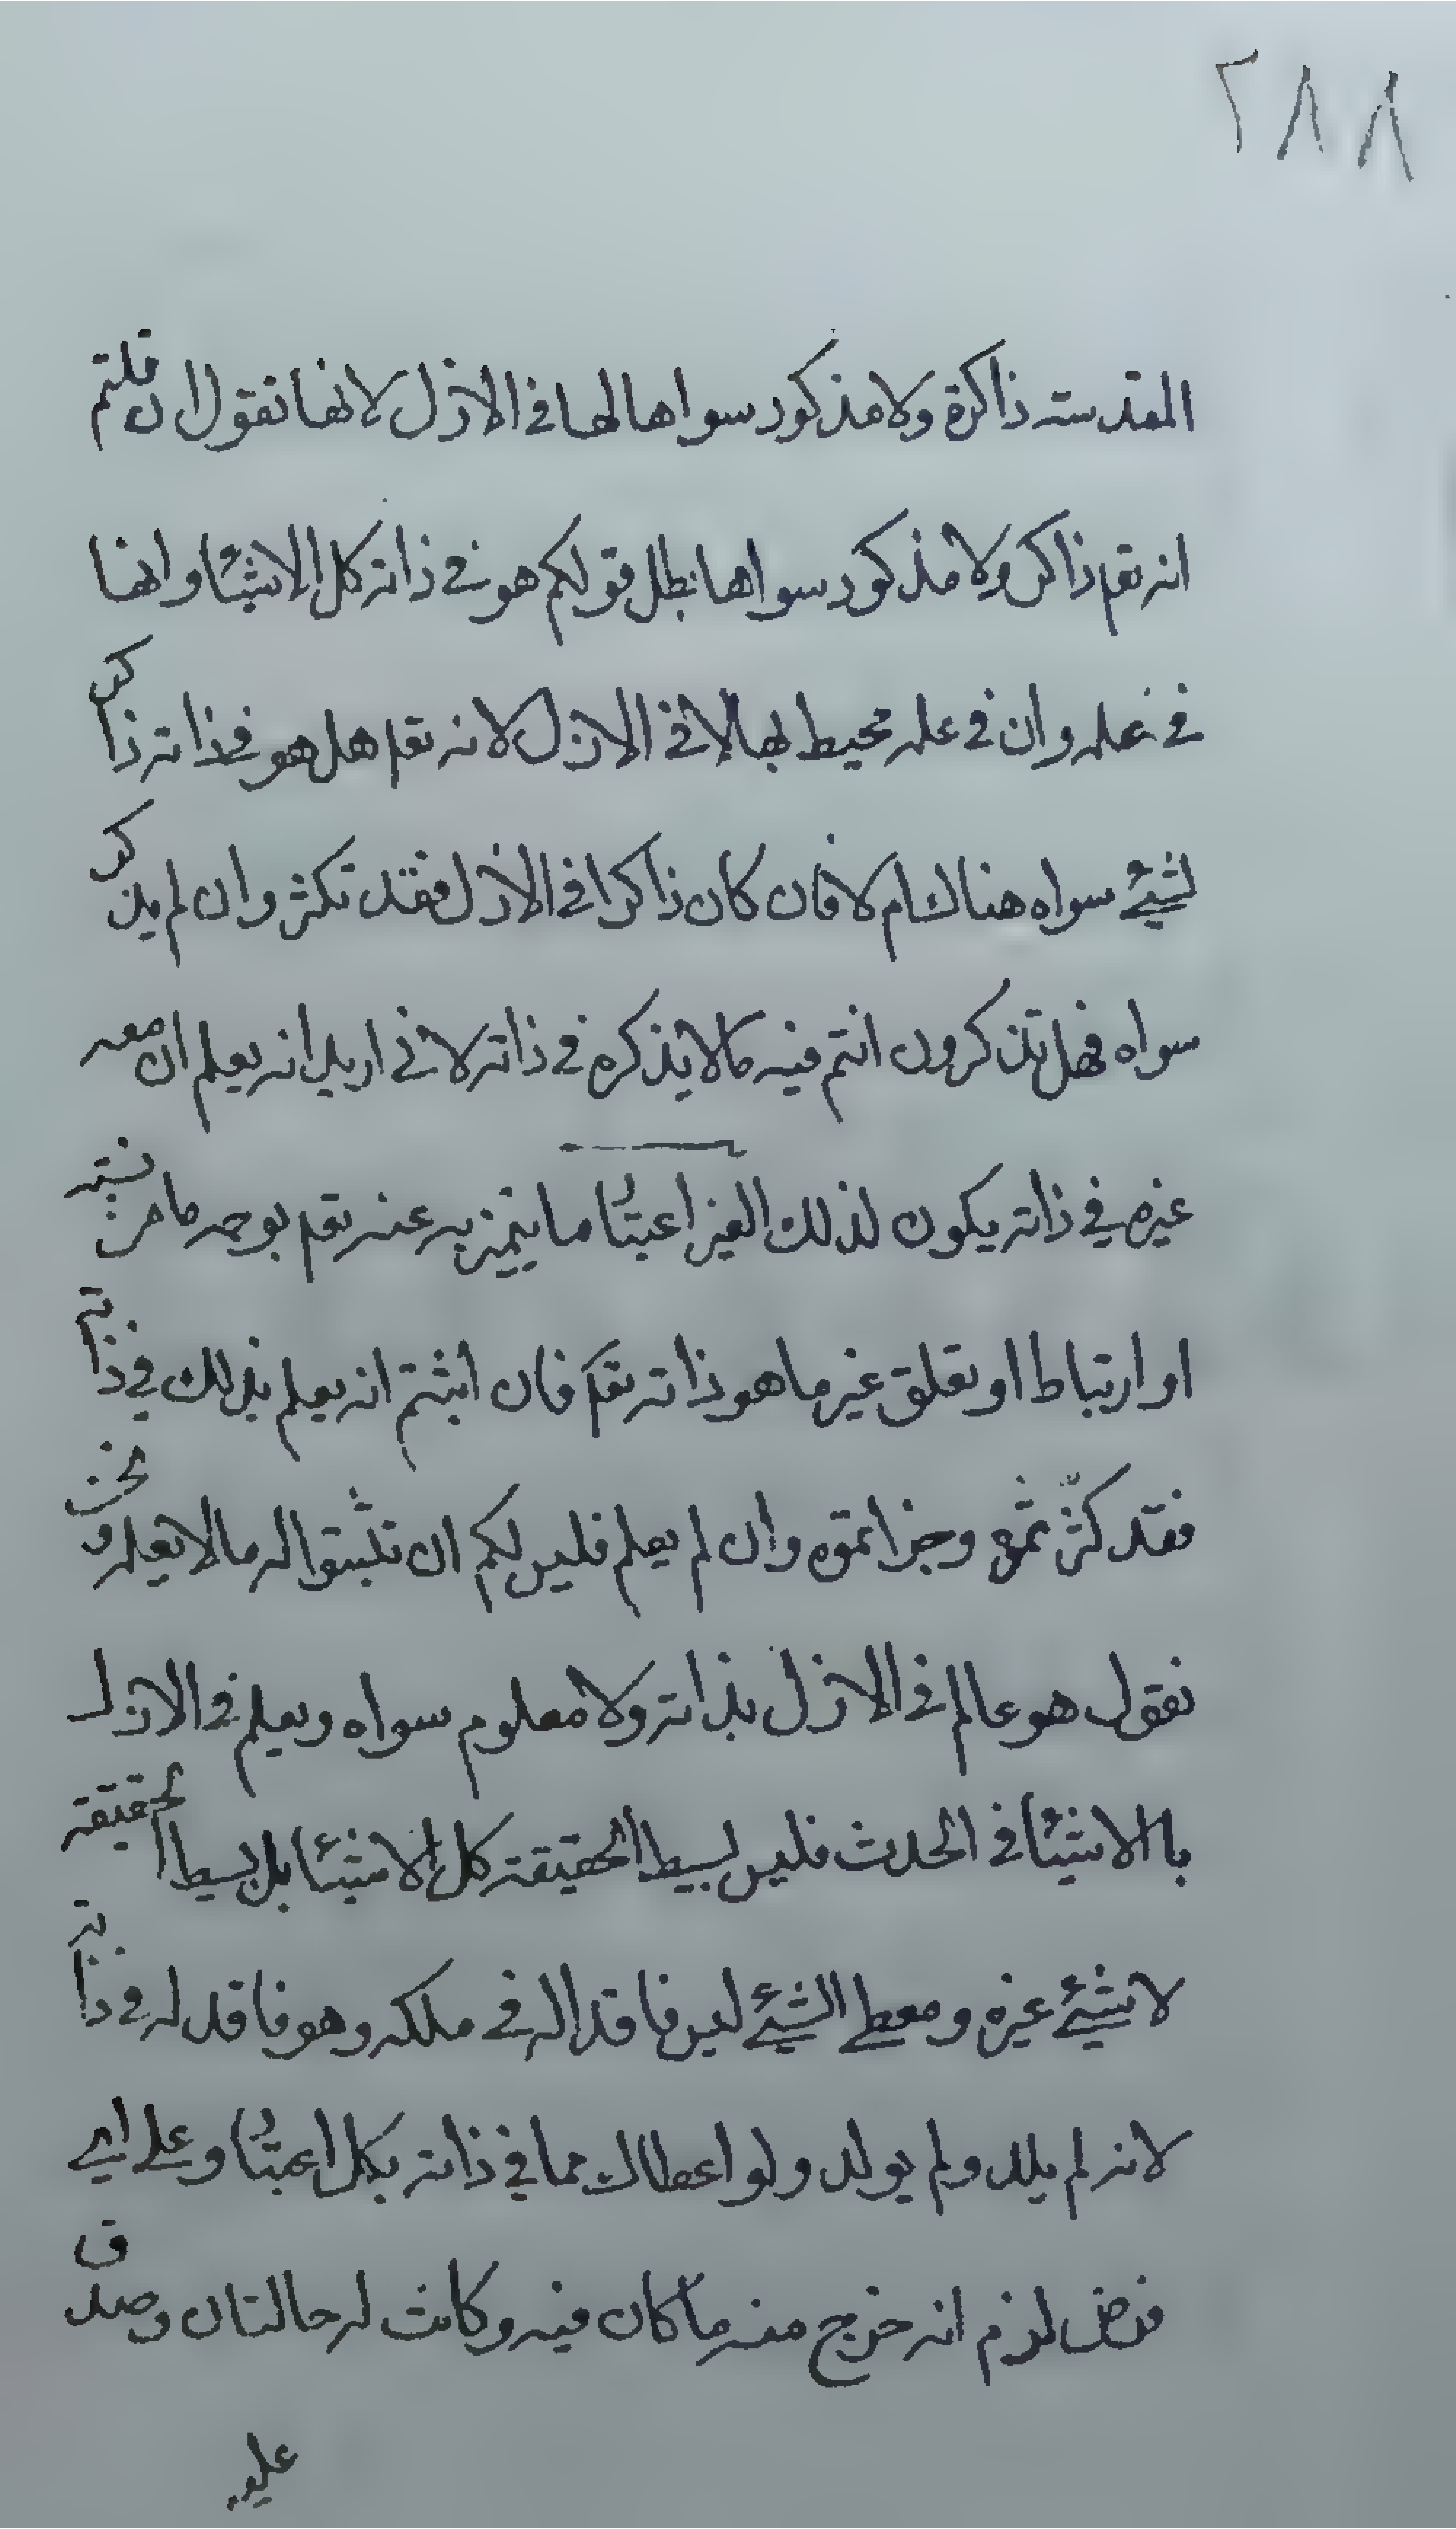 ٢٨٨
المقدسته ذاكرة ولا مذكور سواها لها في الازل لانها نقول ان قلتم
انه تعم ذاكر ولا مذكور سواها بطل قولكم هو في ذاته كل الاشيئا وانها
في علمه وان في علمه محيط بها لا في الازل لانه تعم هل هو في ذاته ذاكر
لشيئ سواه هناك ام لا فان كان ذاكرا في الازل فقد تكثر وان لم يذكر
سواه فهل تذكرون انتم فيه مالا يذكره في ذاته لاني اريد انه يعلم ان معه
غيره في ذاته يكون لذلك الغير اعتبا ما يتميز به عنه تعم بوجه ما من نسبته
او ارتباط او تعلق غير ما هو ذاته تعم فان اثبتم انه يعلم بذلك في ذاته
فقد كثّرتموه وجزاتموه وان لم يعلم فليس لكم ان تثبتوا له مالا يعلمه ونحن
نقول هو عالم في الازل بذاته ولا معلوم سواه ويعلم في الازل
باالاشيئا في الحدث فليس بسيط الحقيقته كل الاشيئا بل بسيط الحقيقته
لا شيئ غيره ومعطي الشيئ ليس فاقدا له في ملكه وهو فاقد له في ذاته
لانه لم يلد ولم يولد ولو اعطاك مما في ذاته بكل اعتبا وعلى اي
فرض لزم انه خرج منه ما كان فيه وكانت له حالتان وصدق
عليه